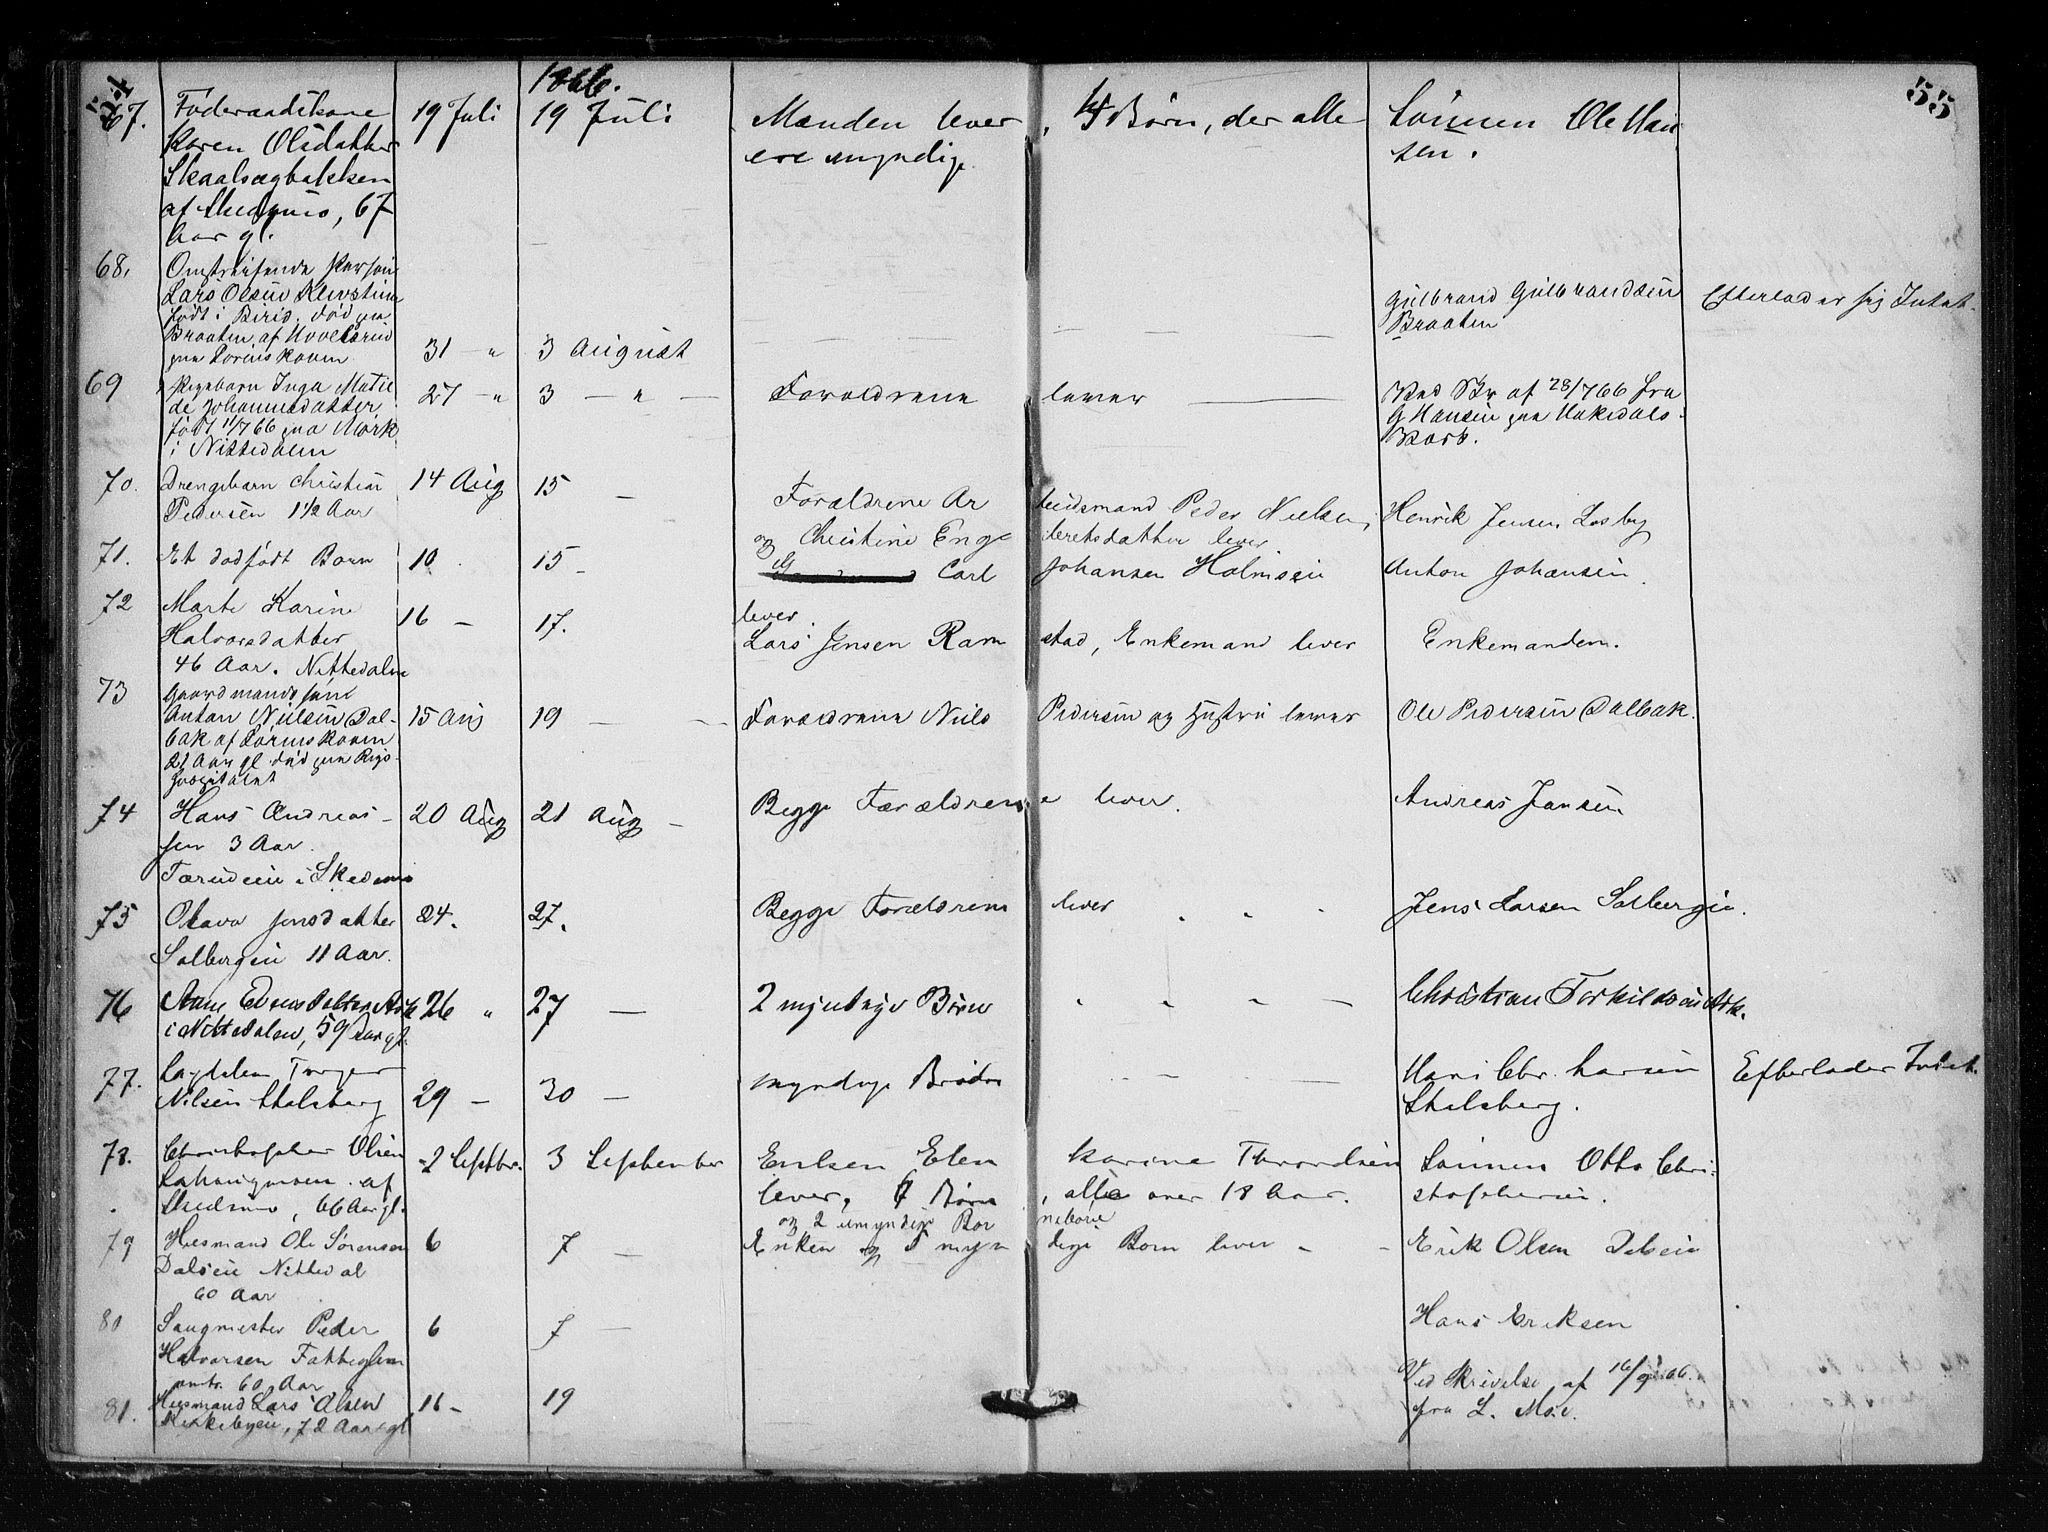 54
1866.
55
67. Føderaadskone 19 Juli 19 Juli Manden lever, 4 Børn, der alle Sønnen Ole Han
Karen Olsdatter ere myndige. sen.
Skaalsægbakken
af Skedsmo, 67
Aar gl.
68. Omstreifende Person
Lars Olsen
født i Birid, død paa Gulbrand Gulbrandsen Efterlader sig Intet.
Braaten af Braaten
paa Lørenskoven 31 — " 3 August
69 Pigebarn Inga Matil 27 — " 3 — " — Forældrene lever Ved Br af 28/7 66 fra
de Johannesdatter G Hansen paa Hakedals
født 11/7 66 paa Mork Værk.
i Nittedalen
70. Drengebarn Christian 14 Aug 15 — Forældrene Ar beidsmand Peder Nielsen, Henrik Jensen Losby
Pedersen 1 1/2 Aar og Christine Enge bretsdatter lever
71. Et dødfødt Barn 10. 15 — Carl Johansen Holmsen Anton Johansen.
lever.
72 Marte Karine 16 — 17. Lars Jensen Ram stad, Enkemand lever Enkemanden.
Halvorsdatter
46 Aar. Nittedalen
73 Gaardmandssøn
Anton Nielsen Dal- 15 Aug 19 — Forældrene Niels Pedersen og Hustru lever Ole Pedersen Dalbak.
bak af Lørenskoven
21 Aar gl død paa Rigs-
hospitalet
74 Hans Andreas- 20 Aug 21 Aug — Begge Forældrene lever. Andreas Jansen
sen 3 Aar.
i Skedsmo
75 Olava Jensdatter 24. 27. Begge Forældrene lever Jens Larsen Solbergie.
Solbergeie 11 Aar.
76 Anne 26 " 27 — 2 myndige Børn Christian Torkildsen Ask.
i Nittedalen, 59 Aar gl.
77. Lægdslem Torger 29 — 30 — myndige Brødre Hans Chr. Larsen Efterlader Intet.
Nilsen Stalsberg Stalsberg.
78. Christopher Olsen 2 Septbr. 3 September Enken Elen Karine Thordsen Sønnen Otto Chri-
af lever, 7 Børn, alle over 18 Aar. stophersen.
Skedsmo, 66 Aar gl.
og 2 umyndige Bør nebørn
79 Huusmand Ole Sørensen 6 7 — Enken og 5 myn dige Børn lever — Erik Olsen Dalseie
Dalseie Nittedal
60 Aar
80 Saugmester Peder 6 7 — Hans Eriksen
Halvorsen Fattiglem
60 Aar
81. Huusmand Lars Olsen 16 — 19 Ved Skrivelse af 16/9 66.
Kirkebyeie, 72 Aar gl fra L. Moe.